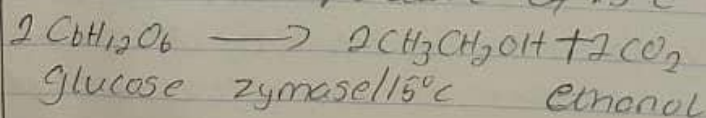 2 C6H12O6 ⟶ 2CH3CH2OH + 2CO2
glucose zymase/15°C ethanol